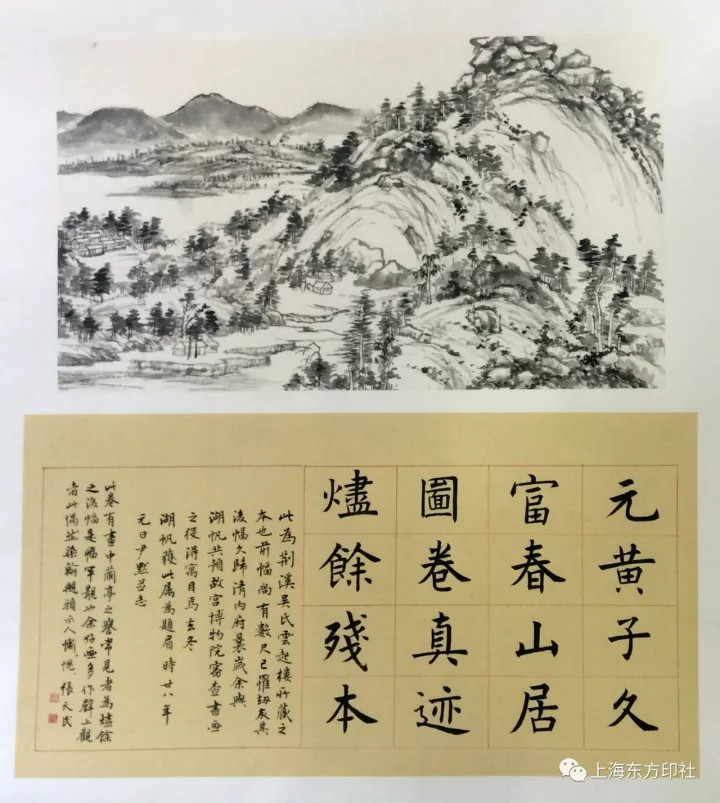 元黄子久
富春山居
圖卷真迹
燼餘殘本
此為荆溪吴氏雲起樓所藏之
本也前幅尚有數尺已罹劫灰其
後幅久歸清内府曩歲余與
湖帆共預故宫博物院審查書画
之役得寓目焉玄冬
湖帆獲此属為題眉時廿八年
元日尹默并志
此卷有畫中蘭亭之譽常見者為燼餘
之後幅是幅罕觀也余好画多作壁上觀
者此偶然染翰示人慚愧張天民
上海东方印社